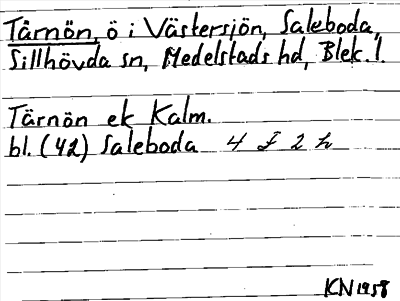 Tärnön, ö i Västersjön, Saleboda,
Sillhövda sn, Medelstads hd, Blek. l.
Tärnön ek Kalm.
bl. (42) Saleboda 4 f 2 h
KN 1958